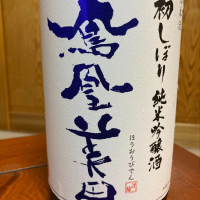 初しぼり
純米吟醸酒
鳳凰美田
ほうおうびでん